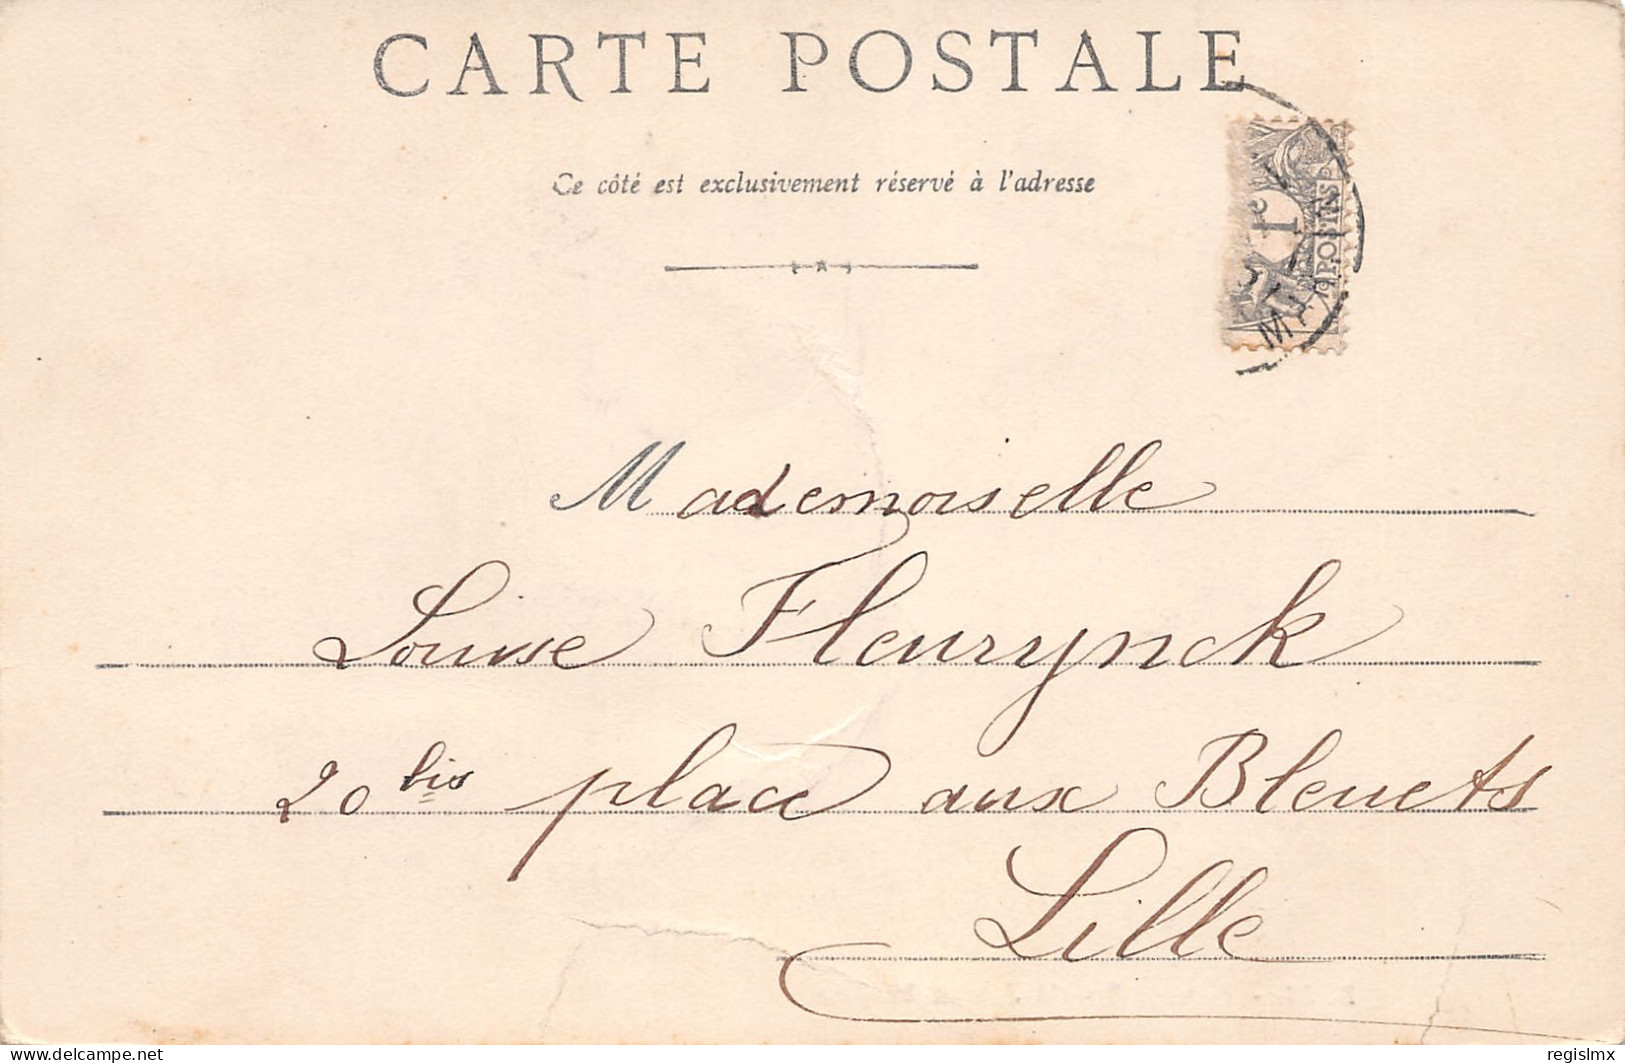 CARTE POSTALE
Ce côté est exclusivement réservé à l'adresse
1c
POSTES
Mademoiselle
Louise Fleurynck
20 bis place aux Bleuets
Lille
www.delcampe.net
regislmx